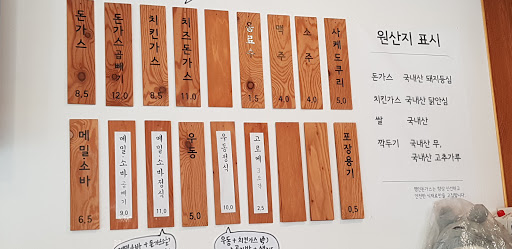 돈가스
8.5
돈가스곱빼기
12.0
치킨가스
8.5
치즈돈가스
11.0
음료수
1.5
맥주
4.0
소주
4.0
사케도쿠리
5.0
메밀소바
6.5
메밀소바곱빼기
9.0
메밀소바정식
11.0
우동
5.0
우동정식
10.0
고로케
2.5
포장용기
0.5
우동 + 치킨가스
원산지 표시
돈가스 국내산 돼지등심
치킨가스 국내산 닭안심
쌀 국내산
깍두기 국내산 무,
국내산 고추가루